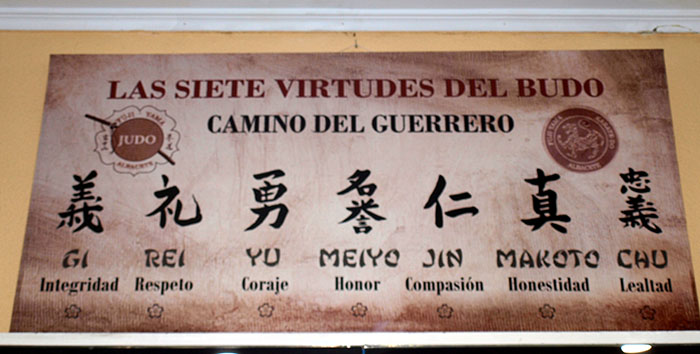 LAS SIETE VIRTUDES DEL BUDO
CAMINO DEL GUERRERO
JUDO
ALBACETE
義 礼 勇 名誉 仁 真 忠義
GI REI YU MEIYO JIN MAKOTO CHU
Integridad Respeto Coraje Honor Compasión Honestidad Lealtad